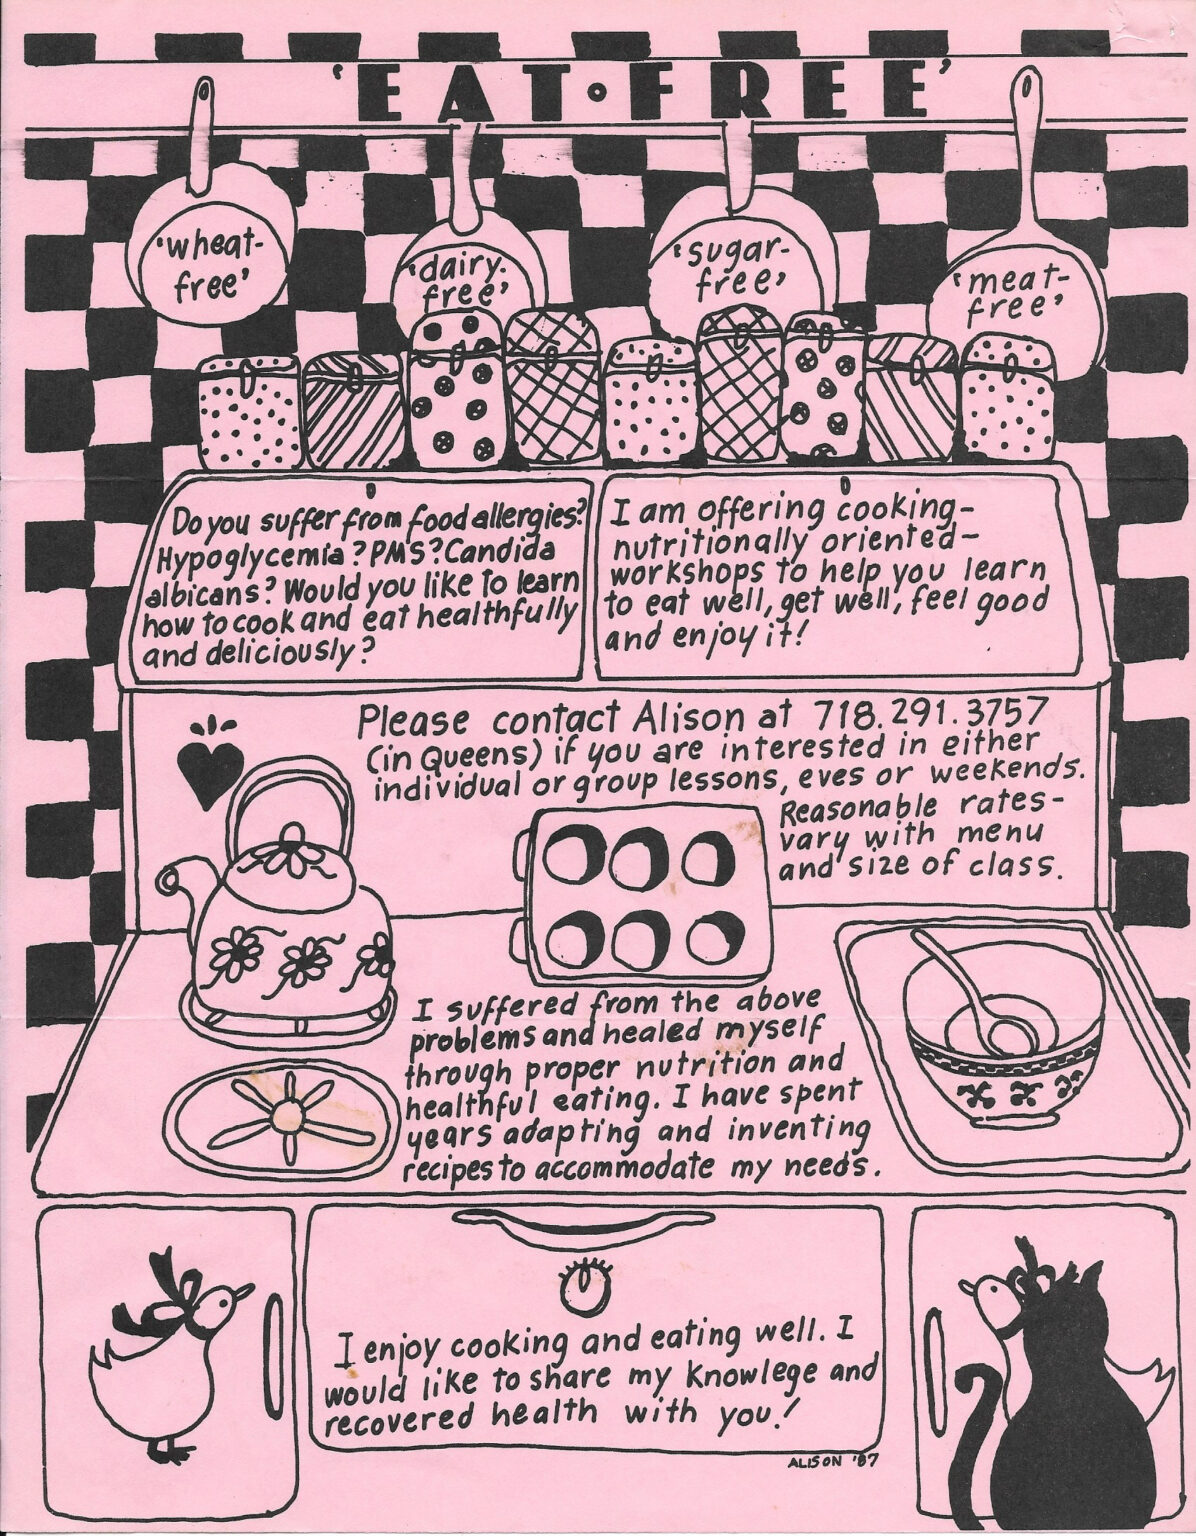 'EAT·FREE'
'wheat-
free'
'dairy-
free'
'sugar-
free'
'meat-
free'
Do you suffer from food allergies?
Hypoglycemia? PMS? Candida
albicans? Would you like to learn
how to cook and eat healthfully
and deliciously?
I am offering cooking-
nutritionally oriented-
workshops to help you learn
to eat well, get well, feel good
and enjoy it!
Please contact Alison at 718.291.3757
(in Queens) if you are interested in either
individual or group lessons, eves or weekends.
Reasonable rates-
vary with menu
and size of class.
I suffered from the above
problems and healed myself
through proper nutrition and
healthful eating. I have spent
years adapting and inventing
recipes to accommodate my needs.
I enjoy cooking and eating well. I
would like to share my knowlege and
recovered health with you!
ALISON '87